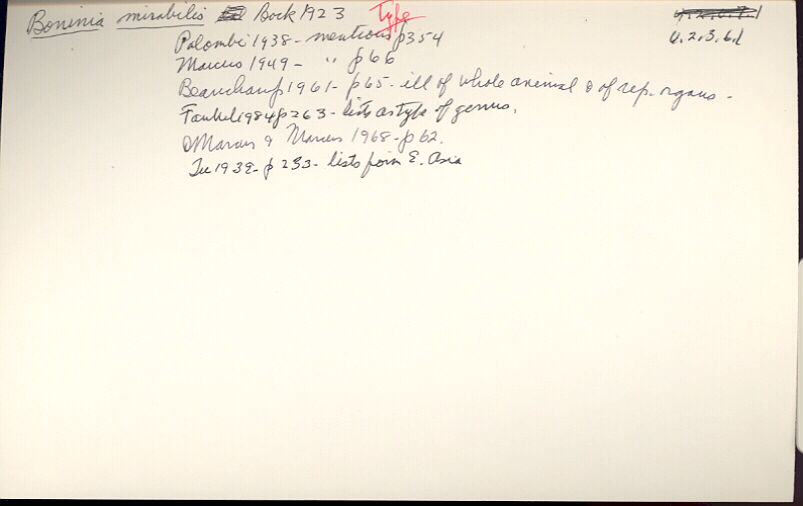 Boninia mirabilis Bock 1923 Type
4.2.3.6.1
Palombi 1938 - mentions p354
Marcus 1949 - " p66
Beauchamp 1961 - p65 - ill of whole animal & of rep. organs -
Faubel 1984 p263 - lists as type of genus.
Marcus & Marcus 1968 - p62.
Tu 1939 - p 233 - lists from E. Asia